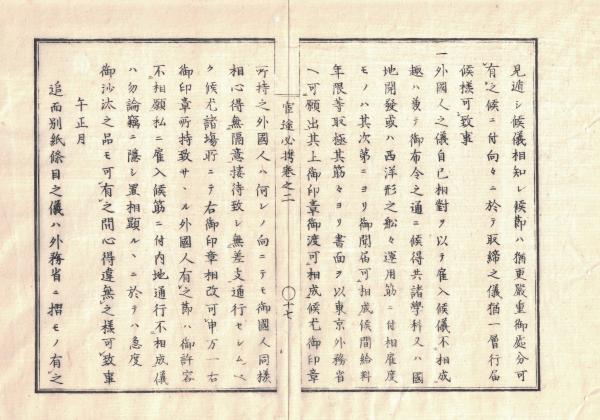 見遁シ候儀相知レ候節ハ猶更嚴重御處分可
有之候ニ付向々ニ於テ取締之儀猶一層行届
候様可致事
一外國人之儀自己相對ヲ以テ雇入候儀不相成
趣ハ兼テ御布令之通ニ候得共諸學科又ハ國
地開發或ハ西洋形之船々運用筋ニ付相雇度
モノハ其次第ニヨリ御聞届可相成候間給料
年限等取極其筋々ヨリ書面ヲ以東京外務省
ヘ可願出其上御印章御渡可相成候尤御印章
官途必携巻之二
〇十七
所持之外國人ハ何レノ向ニテモ御國人同様
相心得無隔意接待致シ無差支通行セシムヘ
ク候尤諸塲所ニテ右御印章相改可申万一右
御印章所持致サヽル外國人有之節ハ御許容
不相願私ニ雇入候筋ニ付内地通行不相成儀
ハ勿論竊ニ隱シ置相顯ルヽニ於テハ急度
御沙汰之品モ可有之間心得違無之様可致事
午正月
追而別紙條目之儀ハ外務省ニ摺モノ有之